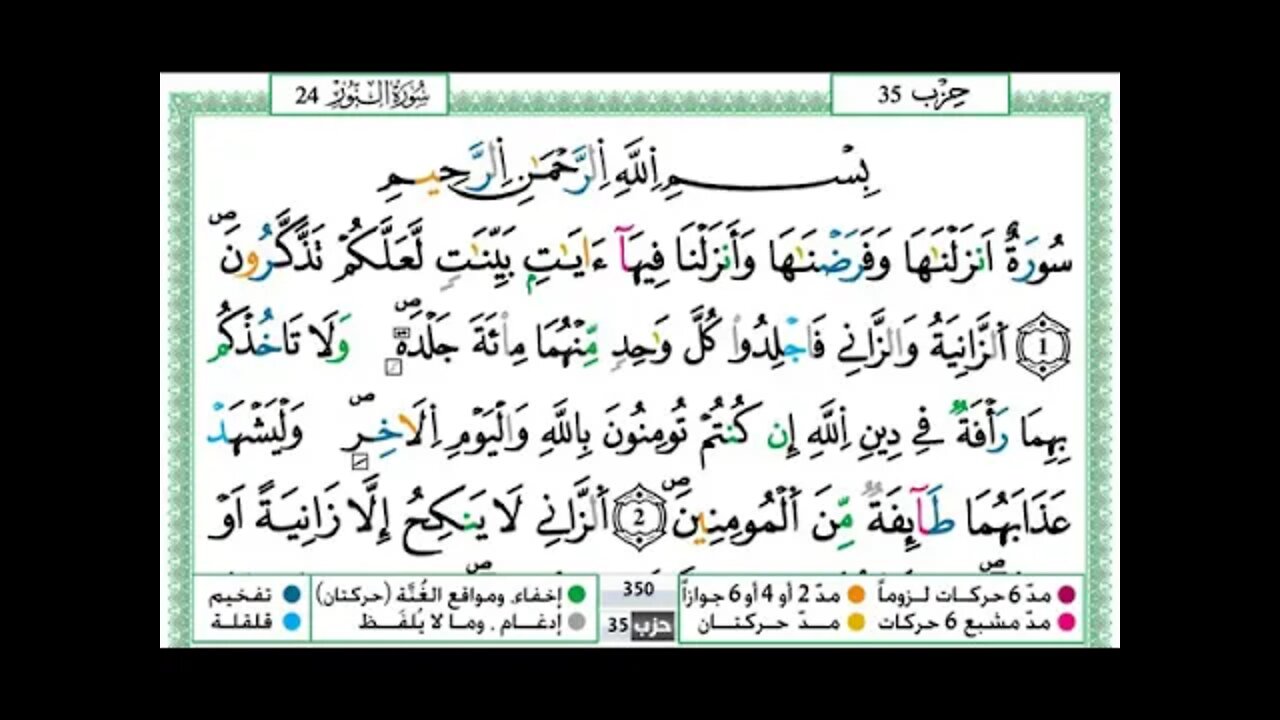 سُورَةُ النُّورِ 24
حِزْب 35
بِسْمِ اِللَّهِ اِلرَّحْمَٰنِ اِلرَّحِيمِ
سُورَةٌ اَنزَلْنَٰهَا وَفَرَضْنَٰهَا وَأَنزَلْنَا فِيهَآ ءَايَٰتِۢ بَيِّنَٰتٖ لَّعَلَّكُمْ تَذَّكَّرُونَۖ
1 اَ۬لزَّانِيَةُ وَالزَّانِے فَاجْلِدُواْ كُلَّ وَٰحِدٖ مِّنْهُمَا مِاْئَةَ جَلْدَةٖۖ وَلَا تَاخُذْكُم
بِهِمَا رَأْفَةٞ فِے دِينِ اِللَّهِ إِن كُنتُمْ تُومِنُونَ بِاللَّهِ وَالْيَوْمِ اِلَاخِرِۖ وَلْيَشْهَدْ
عَذَابَهُمَا طَآئِفَةٞ مِّنَ اَ۬لْمُومِنِينَۖ 2 اَ۬لزَّانِے لَا يَنكِحُ إِلَّا زَانِيَةً اَوْ
مدّ 6 حركات لزوماً مدّ 2 أو 4 أو 6 جوازاً 350 إخفاء، ومواقع الغُنَّة (حركتان) تفخيم
مدّ مشبع 6 حركات مدّ حركتان حزب 35 إدغام ، وما لا يُلفَظ قلقلة